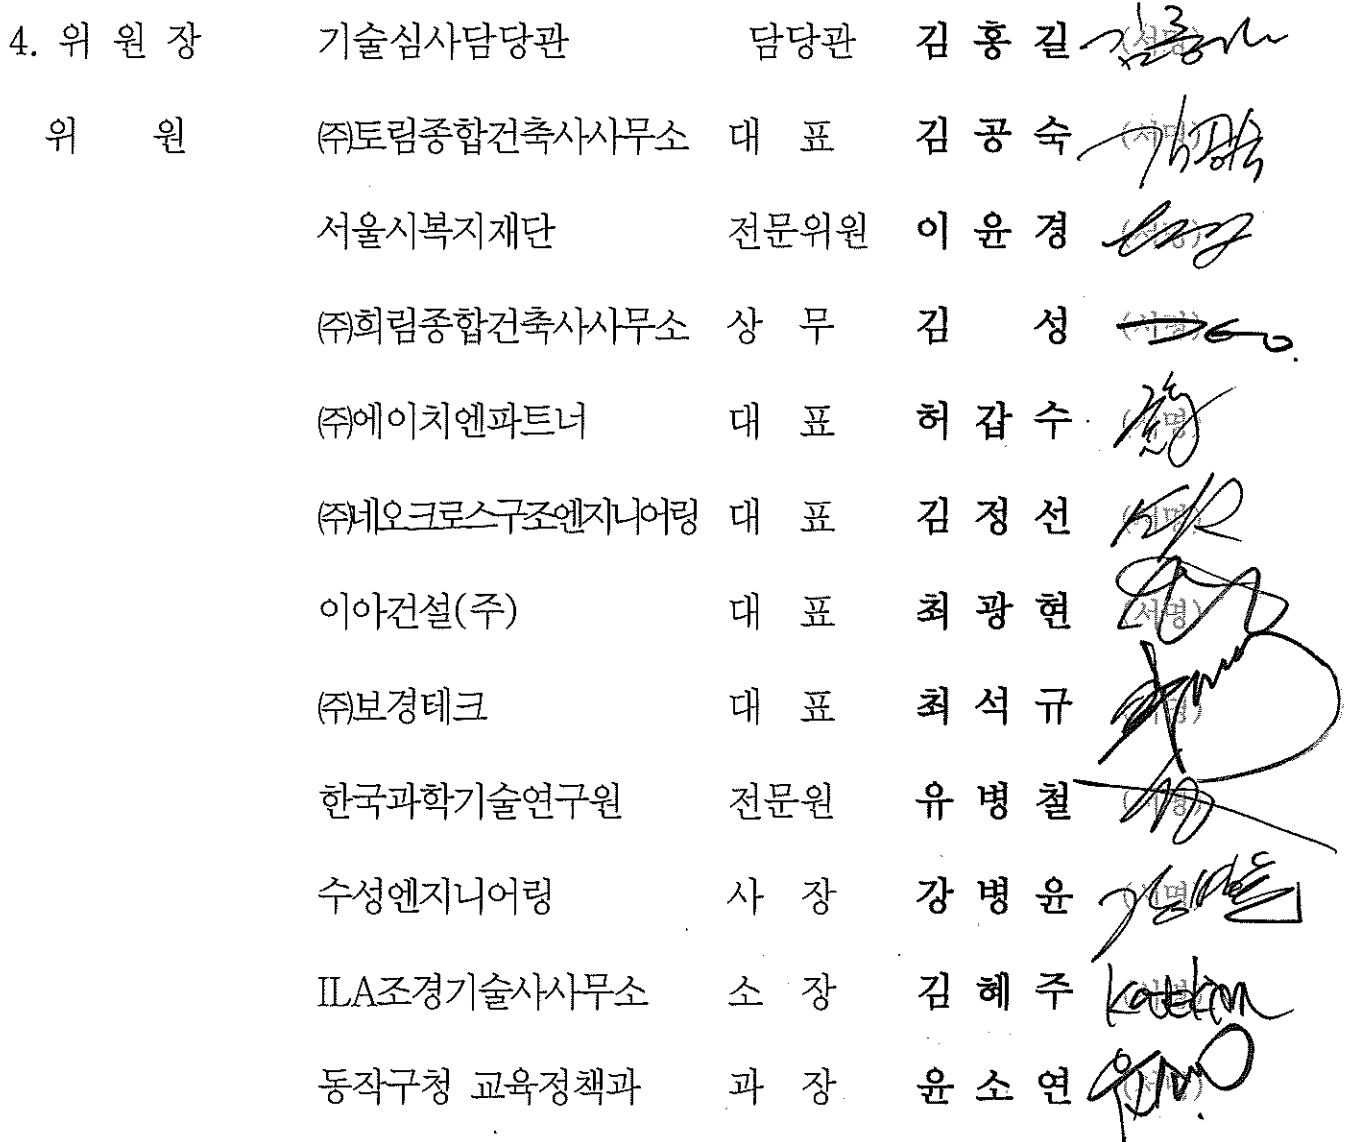 4. 위 원 장 기술심사담당관 담당관 김 홍 길 (서명)
위 원 ㈜토림종합건축사사무소 대 표 김 공 숙 (서명)
서울시복지재단 전문위원 이 윤 경 (서명)
㈜희림종합건축사사무소 상 무 김 성 (서명)
㈜에이치엔파트너 대 표 허 갑 수 (서명)
㈜네오크로스구조엔지니어링 대 표 김 정 선 (서명)
이아건설(주) 대 표 최 광 현 (서명)
㈜보경테크 대 표 최 석 규 (서명)
한국과학기술연구원 전문원 유 병 철 (서명)
수성엔지니어링 사 장 강 병 윤 (서명)
ILA조경기술사사무소 소 장 김 혜 주 (서명)
동작구청 교육정책과 과 장 윤 소 연 (서명)